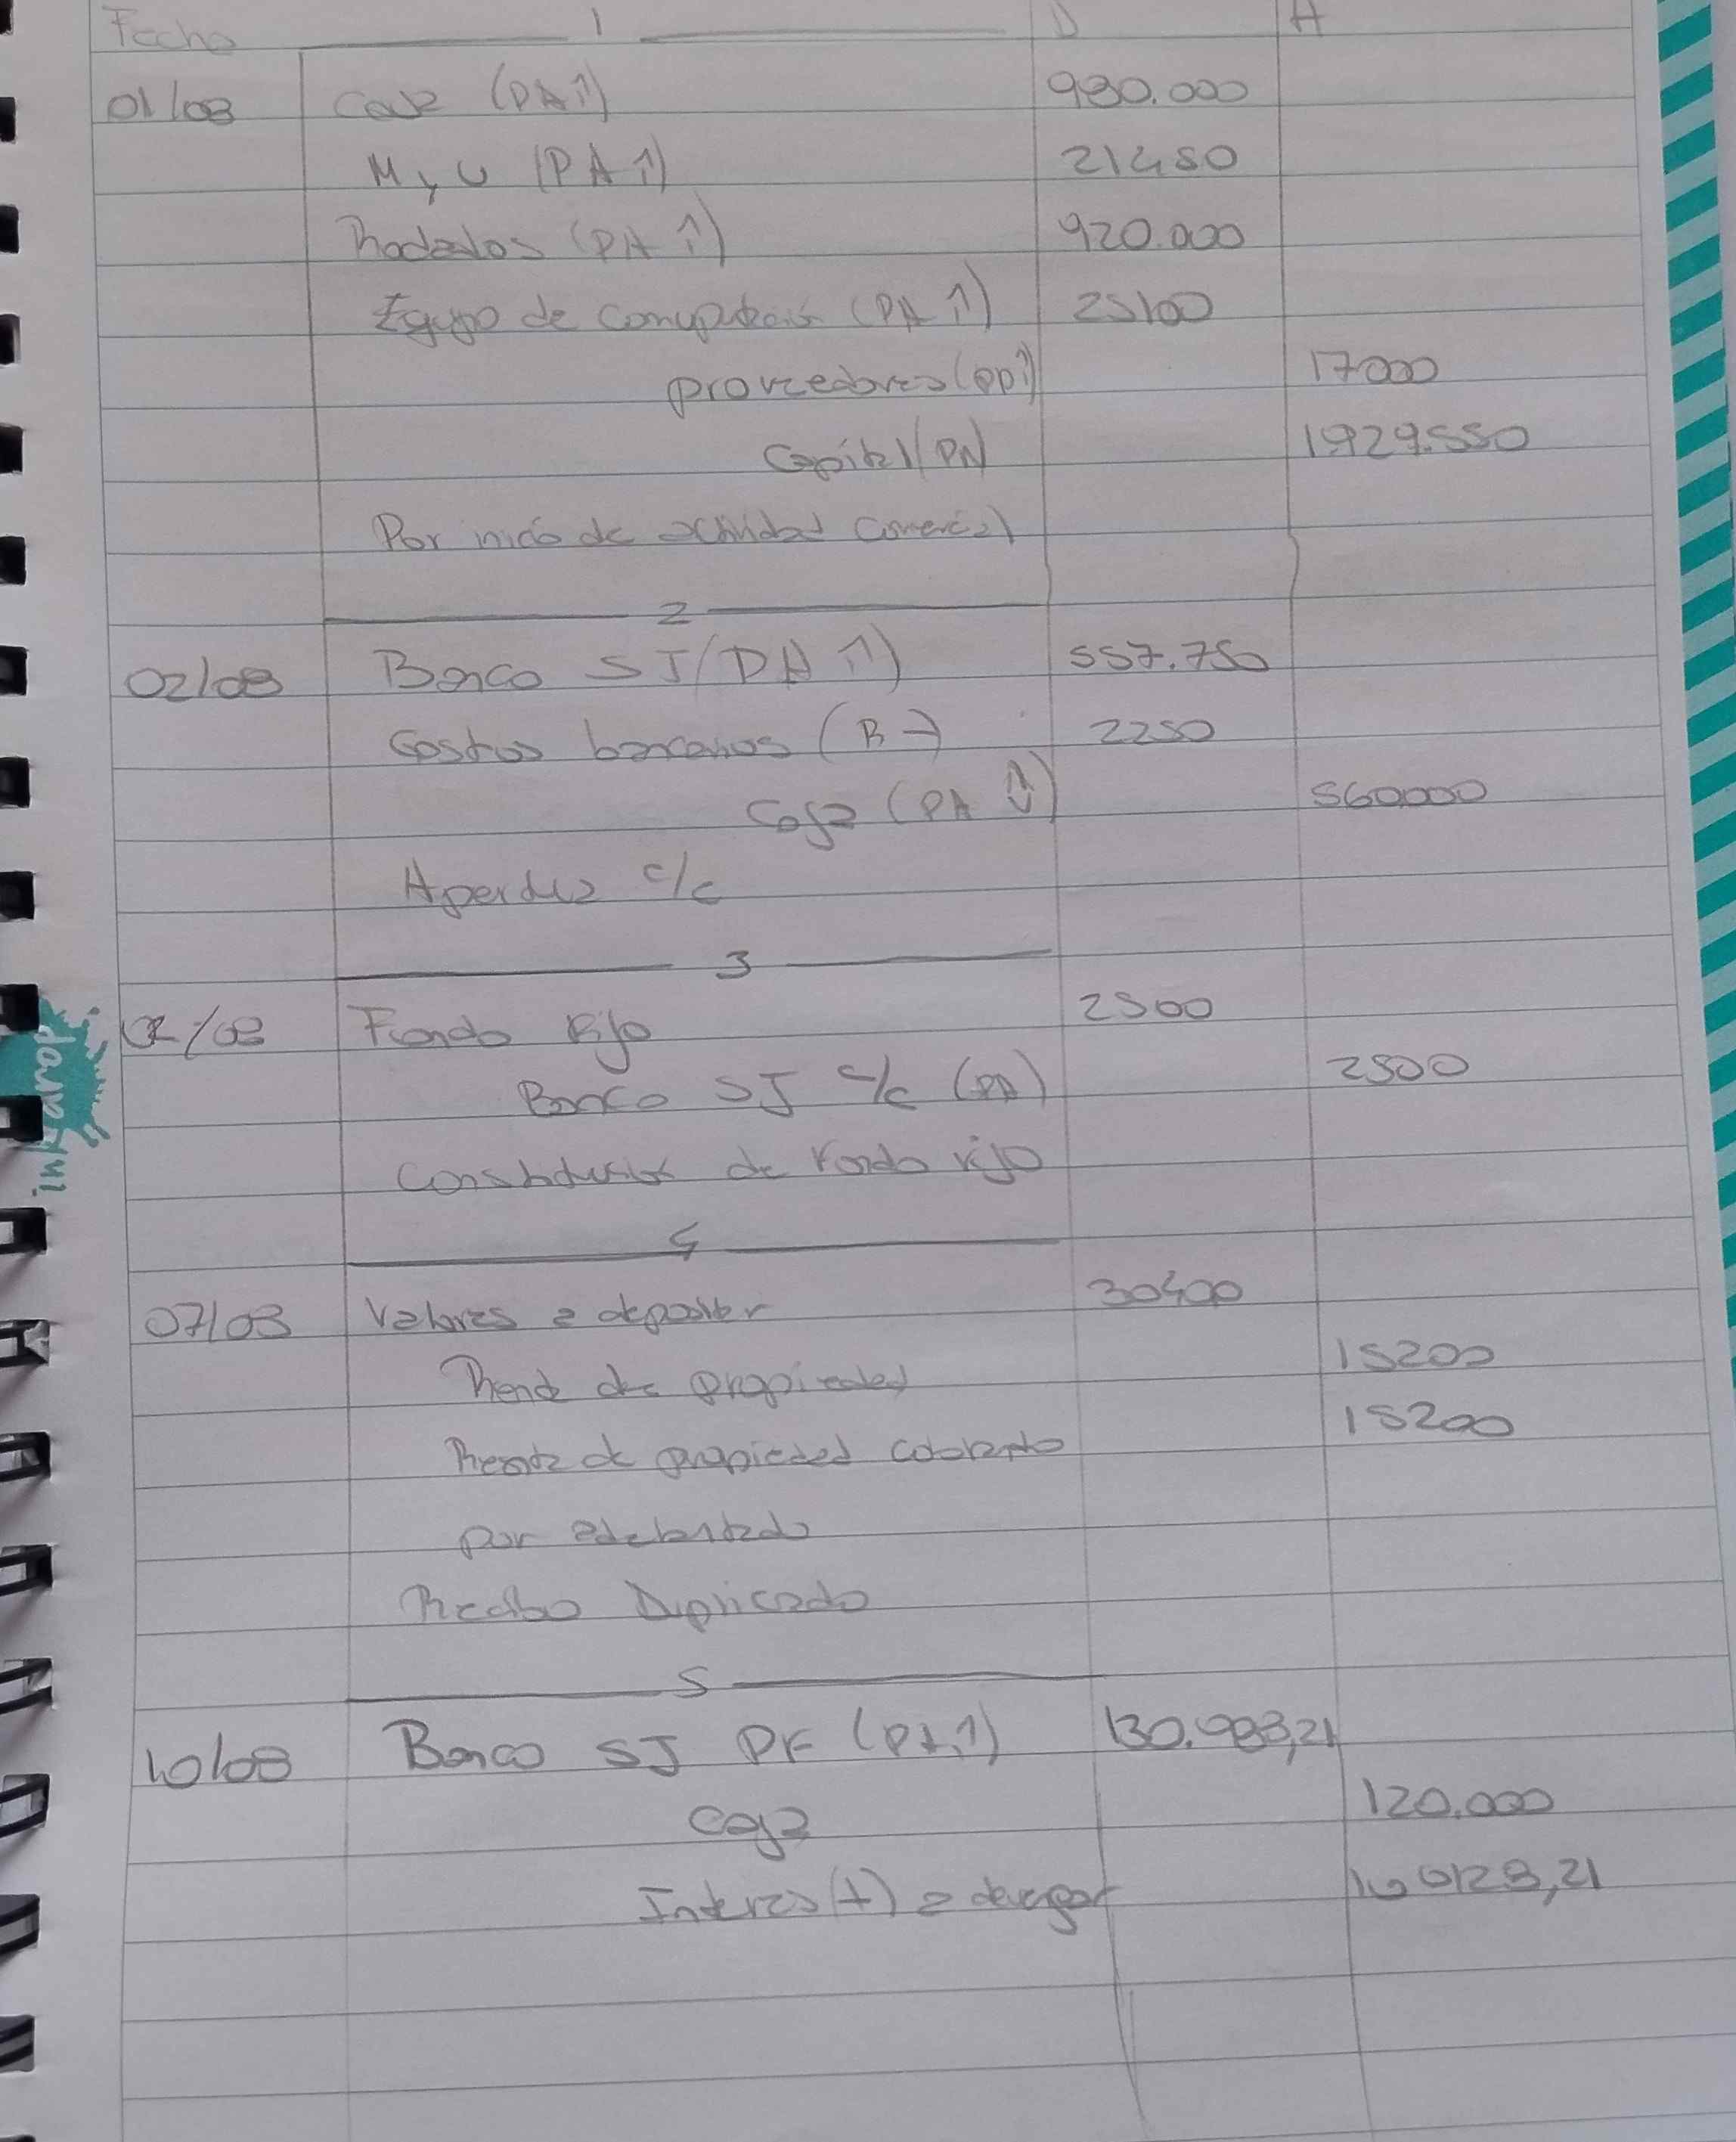 Fecha 1 D H
01/08 Caja (PA↑) 980.000
M y U (PA↑) 21450
Rodados (PA↑) 920.000
Equipo de computación (PA↑) 25100
proveedores (PP↑) 17000
Capital (PN) 1.929.550
Por inicio de actividad comercial
2
02/08 Banco SJ (PA↑) 557.750
Gastos bancarios (R-) 2250
Caja (PA↓) 560000
Apertura c/c
3
02/08 Fondo Fijo 2500
Banco SJ c/c (PA) 2500
Constitución de Fondo Fijo
4
07/08 Valores a depositar 30400
Renta de propiedad 15200
Renta de propiedad cobrado 15200
por adelantado
Recibo Duplicado
5
10/08 Banco SJ PF (PA↑)
Caja 120.000
Interes (+) a devengar